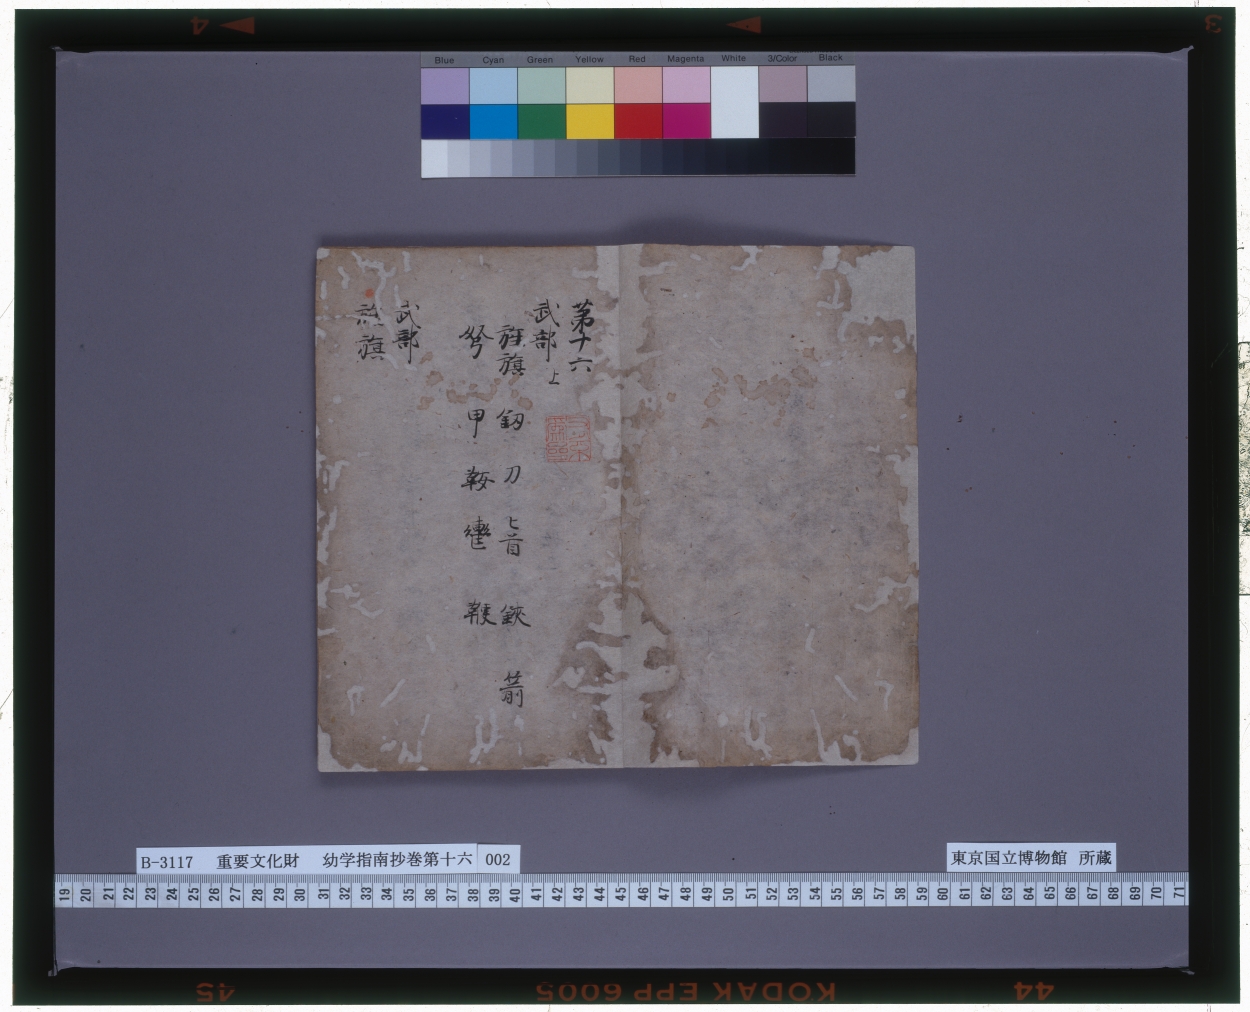 Blue Cyan Green Yellow Red Magenta White 3/Color Black
第十六
武部上
旌旗 釼 刀 匕首 鋏 箭
弩 甲 鞍 轡 鞭
武部
旌旗
B-3117 重要文化財 幼学指南抄巻第十六 002
東京国立博物館 所蔵
19 20 21 22 23 24 25 26 27 28 29 30 31 32 33 34 35 36 37 38 39 40 41 42 43 44 45 46 47 48 49 50 51 52 53 54 55 56 57 58 59 60 61 62 63 64 65 66 67 68 69 70 71
45 KODAK EPP 6005 44